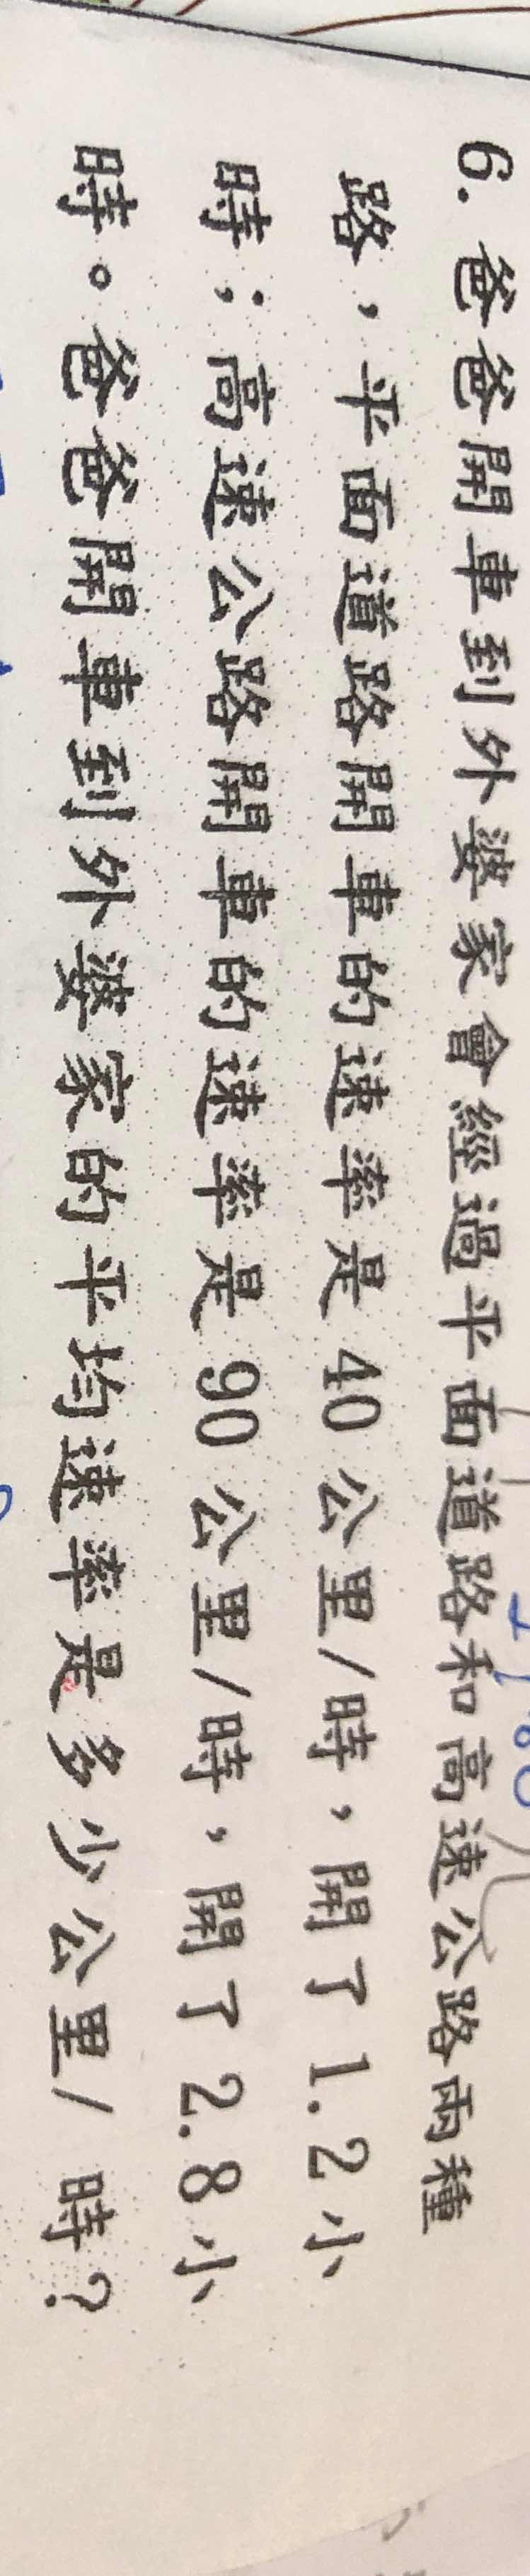 6. 爸爸開車到外婆家會經過平面道路和高速公路兩種
路，平面道路開車的速率是 40 公里/時，開了 1.2 小
時；高速公路開車的速率是 90 公里/時，開了 2.8 小
時。爸爸開車到外婆家的平均速率是多少公里/ 時？